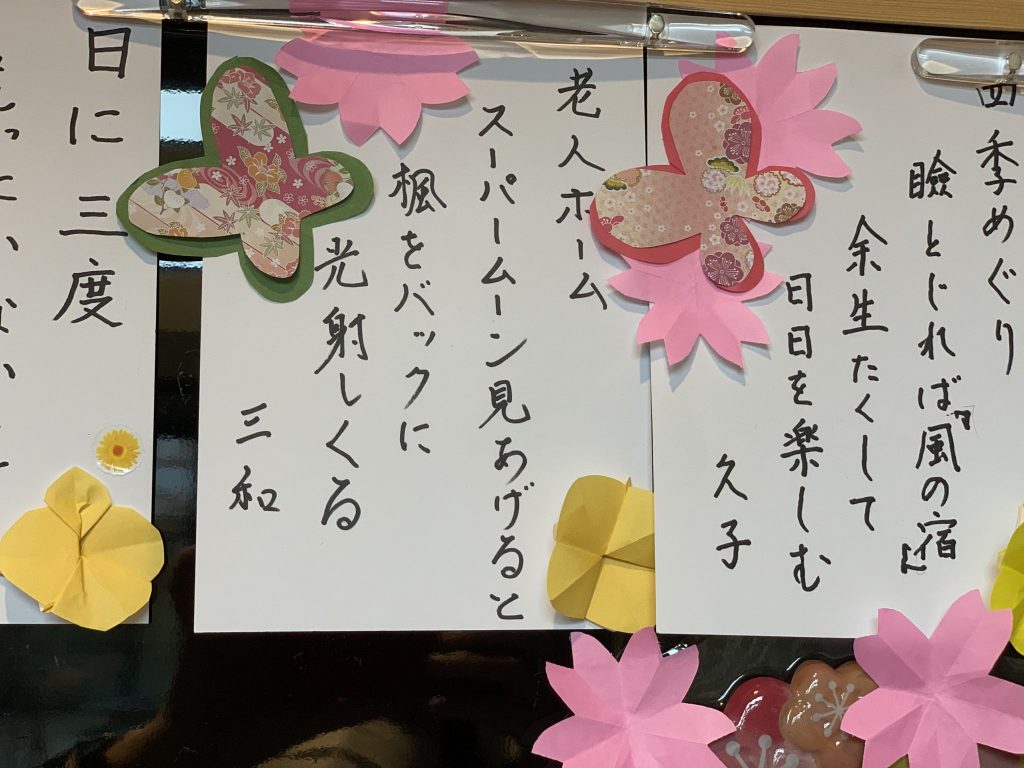 四季めぐり
瞼とじれば『風の宿』
余生たくして
日日を楽しむ
久子
老人ホーム
スーパームーン見あげると
楓をバックに
光射しくる
三和
日に三度